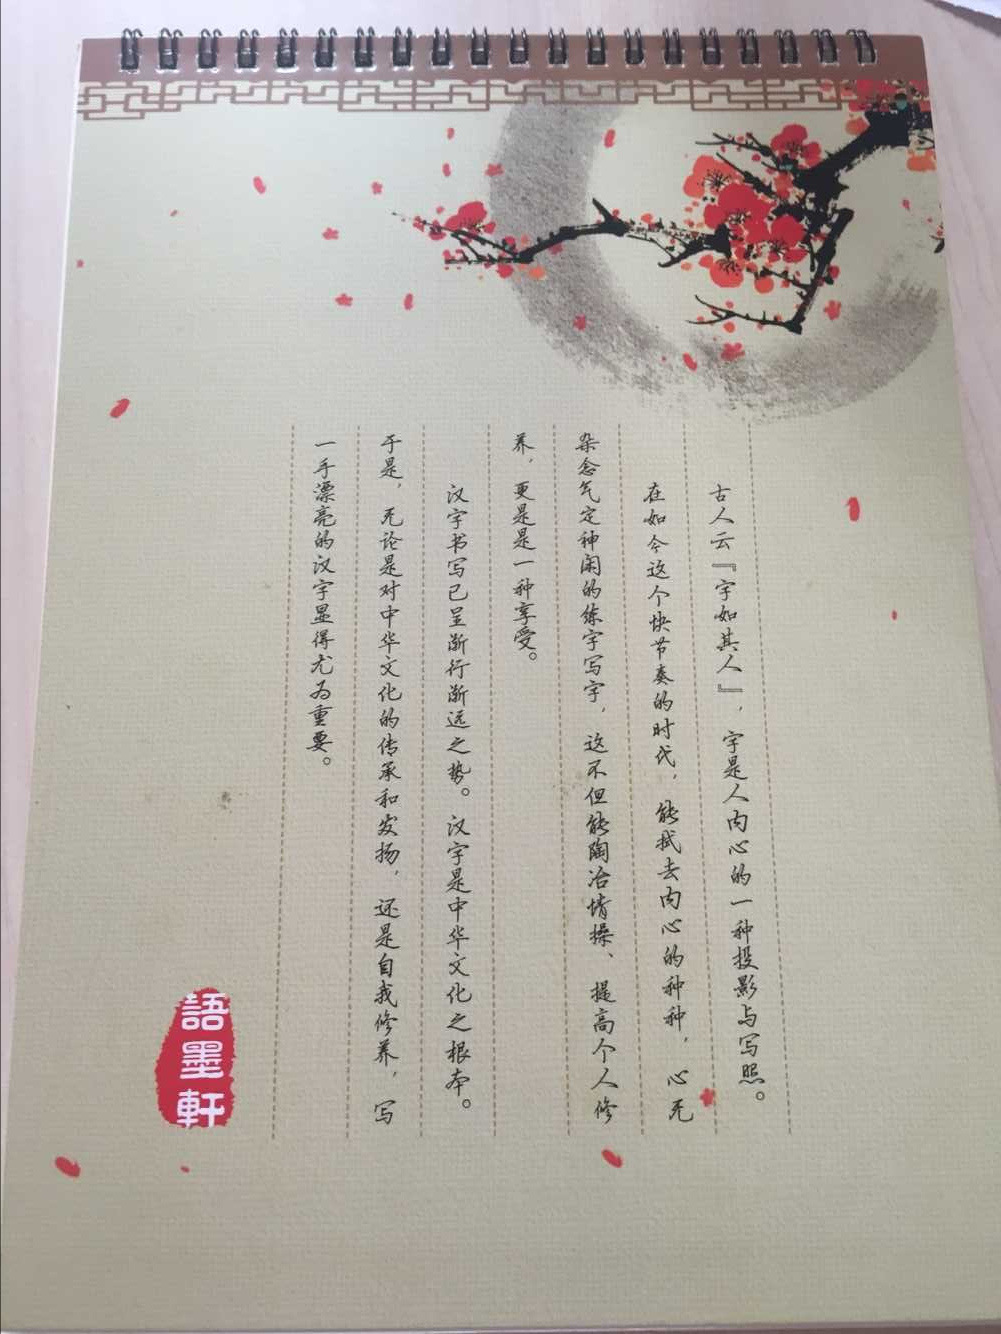 古人云『字如其人』，字是人内心的一种投影与写照。
在如今这个快节奏的时代，能拭去内心的种种，心无
杂念气定神闲的练字写字，这不但能陶冶情操、提高个人修
养，更是是一种享受。
汉字书写已呈渐行渐远之势。汉字是中华文化之根本。
于是，无论是对中华文化的传承和发扬，还是自我修养，写
一手漂亮的汉字显得尤为重要。
語墨軒